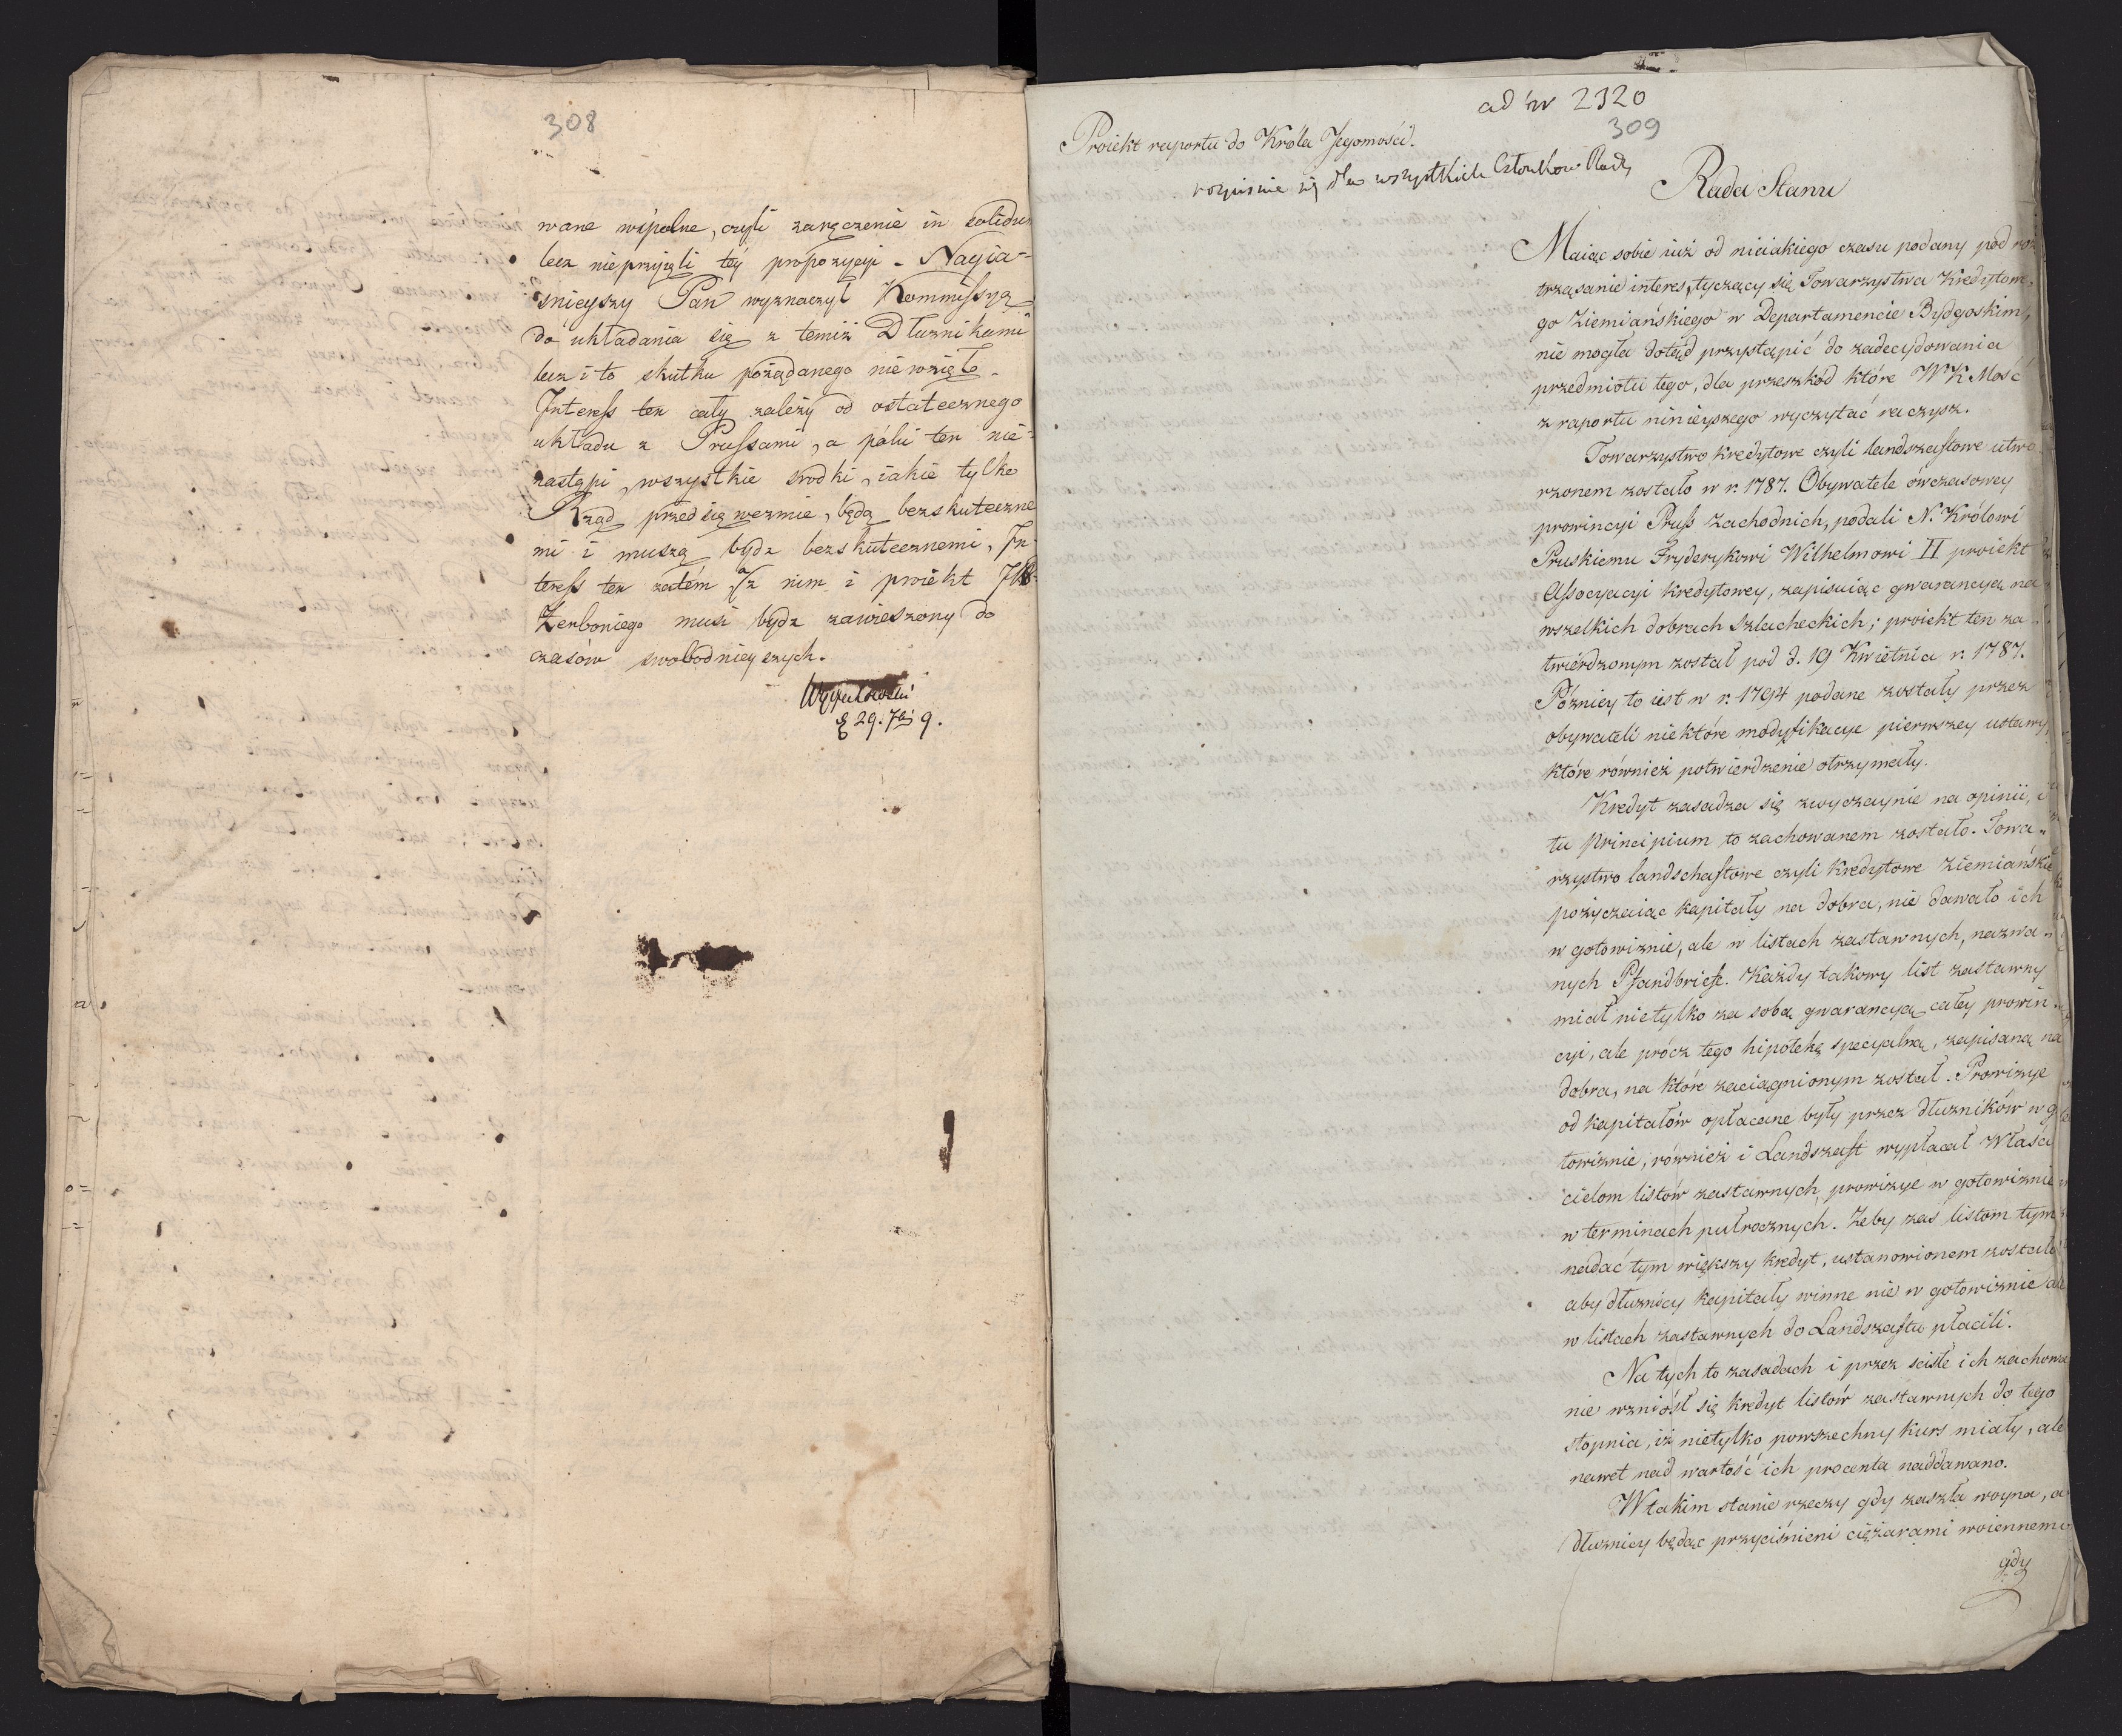 308
wane wspólne, czyli zaręczenie in solidum
lecz nieprzyjęli téy propozycyi. Nayia=
śnieyszy Pan wyznaczył Kommissyą
do układania się z temiż Dłużnikami
lecz i to skutku pożądanego nie wzięło.
Interess ten cały zależy od ostatecznego
układu z Prussami, a póki ten nie=
nastąpi, wszystkie srodki, iakie tylko
Rząd przedsięwezmie, będą bezskuteczne
mi i muszą bydz bezskutecznemi, In
teress ten zatém, a z nim i proiekt
Zerboniego musi bydz zawieszony do
czasów swobodnieyszych.
d 29. 7br 9.
ad nr 2320
309
Proiekt raportu do Króla Jegomości.
rozpisuie się dla wszystkich Członkow Rady
Rada Stanu
Maiąc sobie iuż od nieiakiego czasu podany pod roz
trząsanie interes, tyczący się Towarzystwa Kredytowe
go Ziemiańskiego w Departamencie Bydgoskim,
nie mogła dotąd przystąpić do zadecydowania
przedmiotu tego, dla przeszkód które WK Mość
z raportu ninieyszego wyczytać raczysz.
Towarzystwo kredytowe czyli landszaftowe utwo
rzonem zostało w r. 1787. Obywatele owczasowey
prowincyi Pruss Zachodnich, podali N. Królowi
Pruskiemu Fryderykowi Wilhelmowi II proiekt
Assocyacyi kredytowey, zapisuiąc gwarancyą na
wszelkich dobrach szlacheckich; proiekt ten za
twiérdzonym został pod d. 19 Kwietnia r. 1787.
Pózniey to iest w r. 1794 podane zostały przez
obywateli niektóre modyfikacye pierwszey ustawy,
które również potwierdzenie otrzymały.
Kredyt zasadza się zwyczaynie na opinii, i
tu principium to zachowanem zostało. Towa„
rzystwo landschaftowe czyli kredytowe ziemiańskie
pożyczaiąc kapitały na dobra, nie dawało ich
w gotowiznie, ale w listach zastawnych, nazwa„
nych Pfandbriefe. Każdy takowy list zastawny
miał nietylko za sobą gwarancyą całey prowin„
cyi, ale prócz tego hipotekę specyalną, zapisaną na
dobra, na które zaciągnionym został. Prowizye
od kapitałów opłacane były przez dłużników w go
towiznie, również i Landszaft wypłacał Właści
cielom listów zastawnych prowizye w gotowiznie
w terminach pułrocznych. Żeby zas listom tym
nadać tym większy kredyt, ustanowionem zostało
aby dłużnicy kapitały winne nie w gotowiznie ale
w listach zastawnych do Landszaftu płacili.
Na tych to zasadach i przez scisłe ich zachowa
nie wzniósł się kredyt listów zastawnych do tego
stopnia, iż nietylko powszechny kurs miały, ale
nawet nad wartość ich procenta naddawano.
W takim stanie rzeczy gdy zaszła woyna, a
dłużnicy będąc przyciśnieni ciężarami woiennemi
gdy